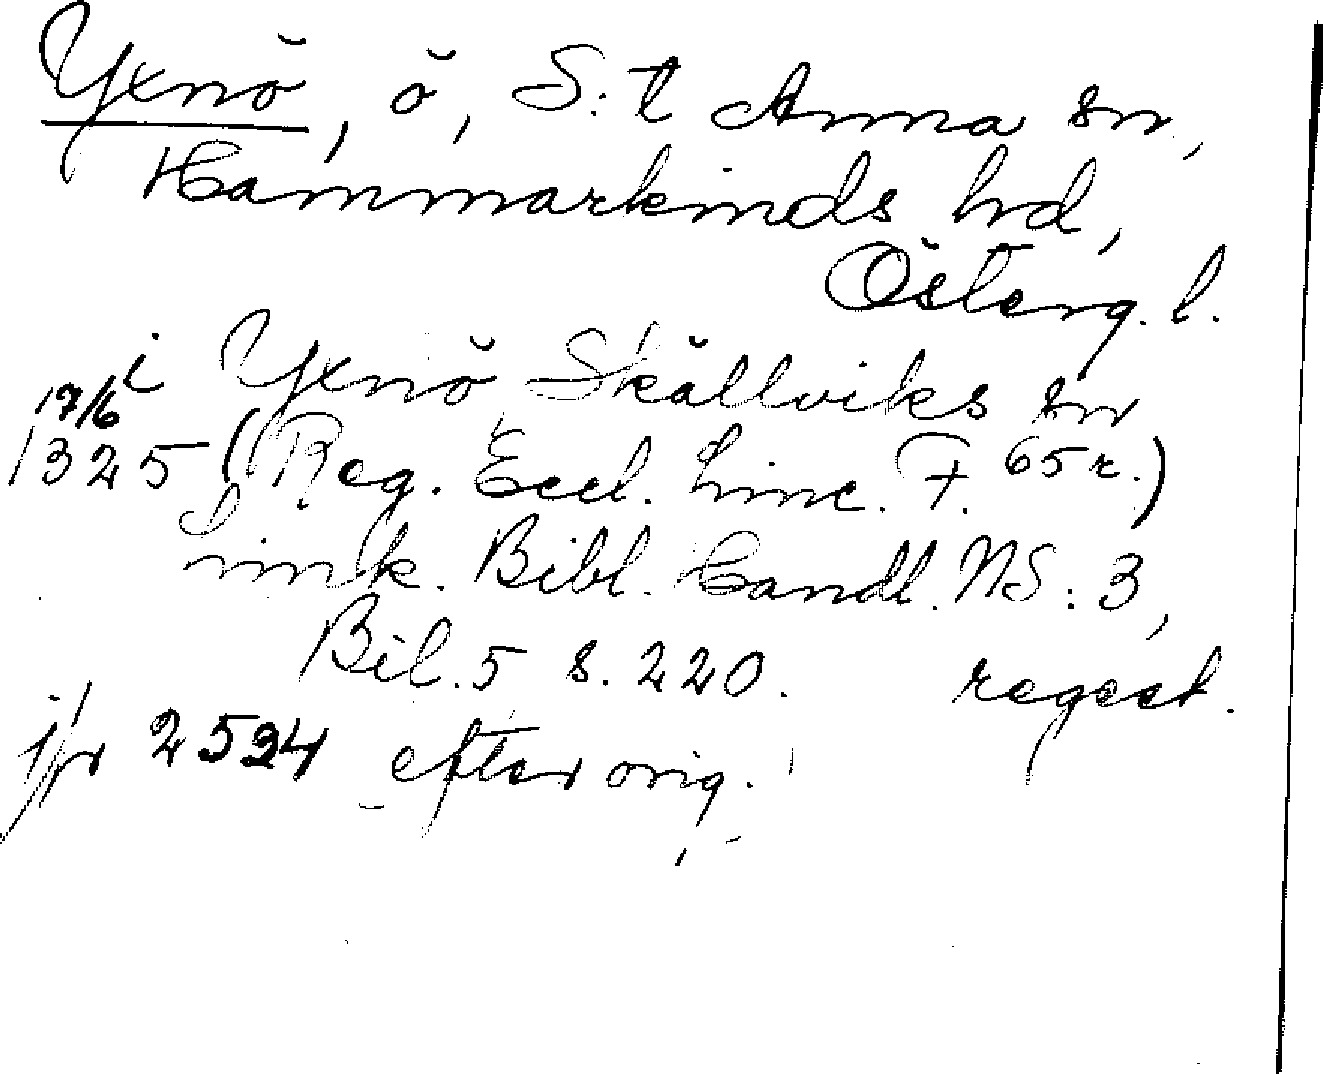 Yxnö, ö, S:t Anna sn,
Hammarkinds hd,
Österg. l.
i Yxnö Skällviks sn
17/6
1325 (Reg. Eccl. Linc. F. 65 r.)
Link. Bibl. Handl. NS: 3,
Bil. 5 s. 220. regest.
jfr 2524 efter orig.